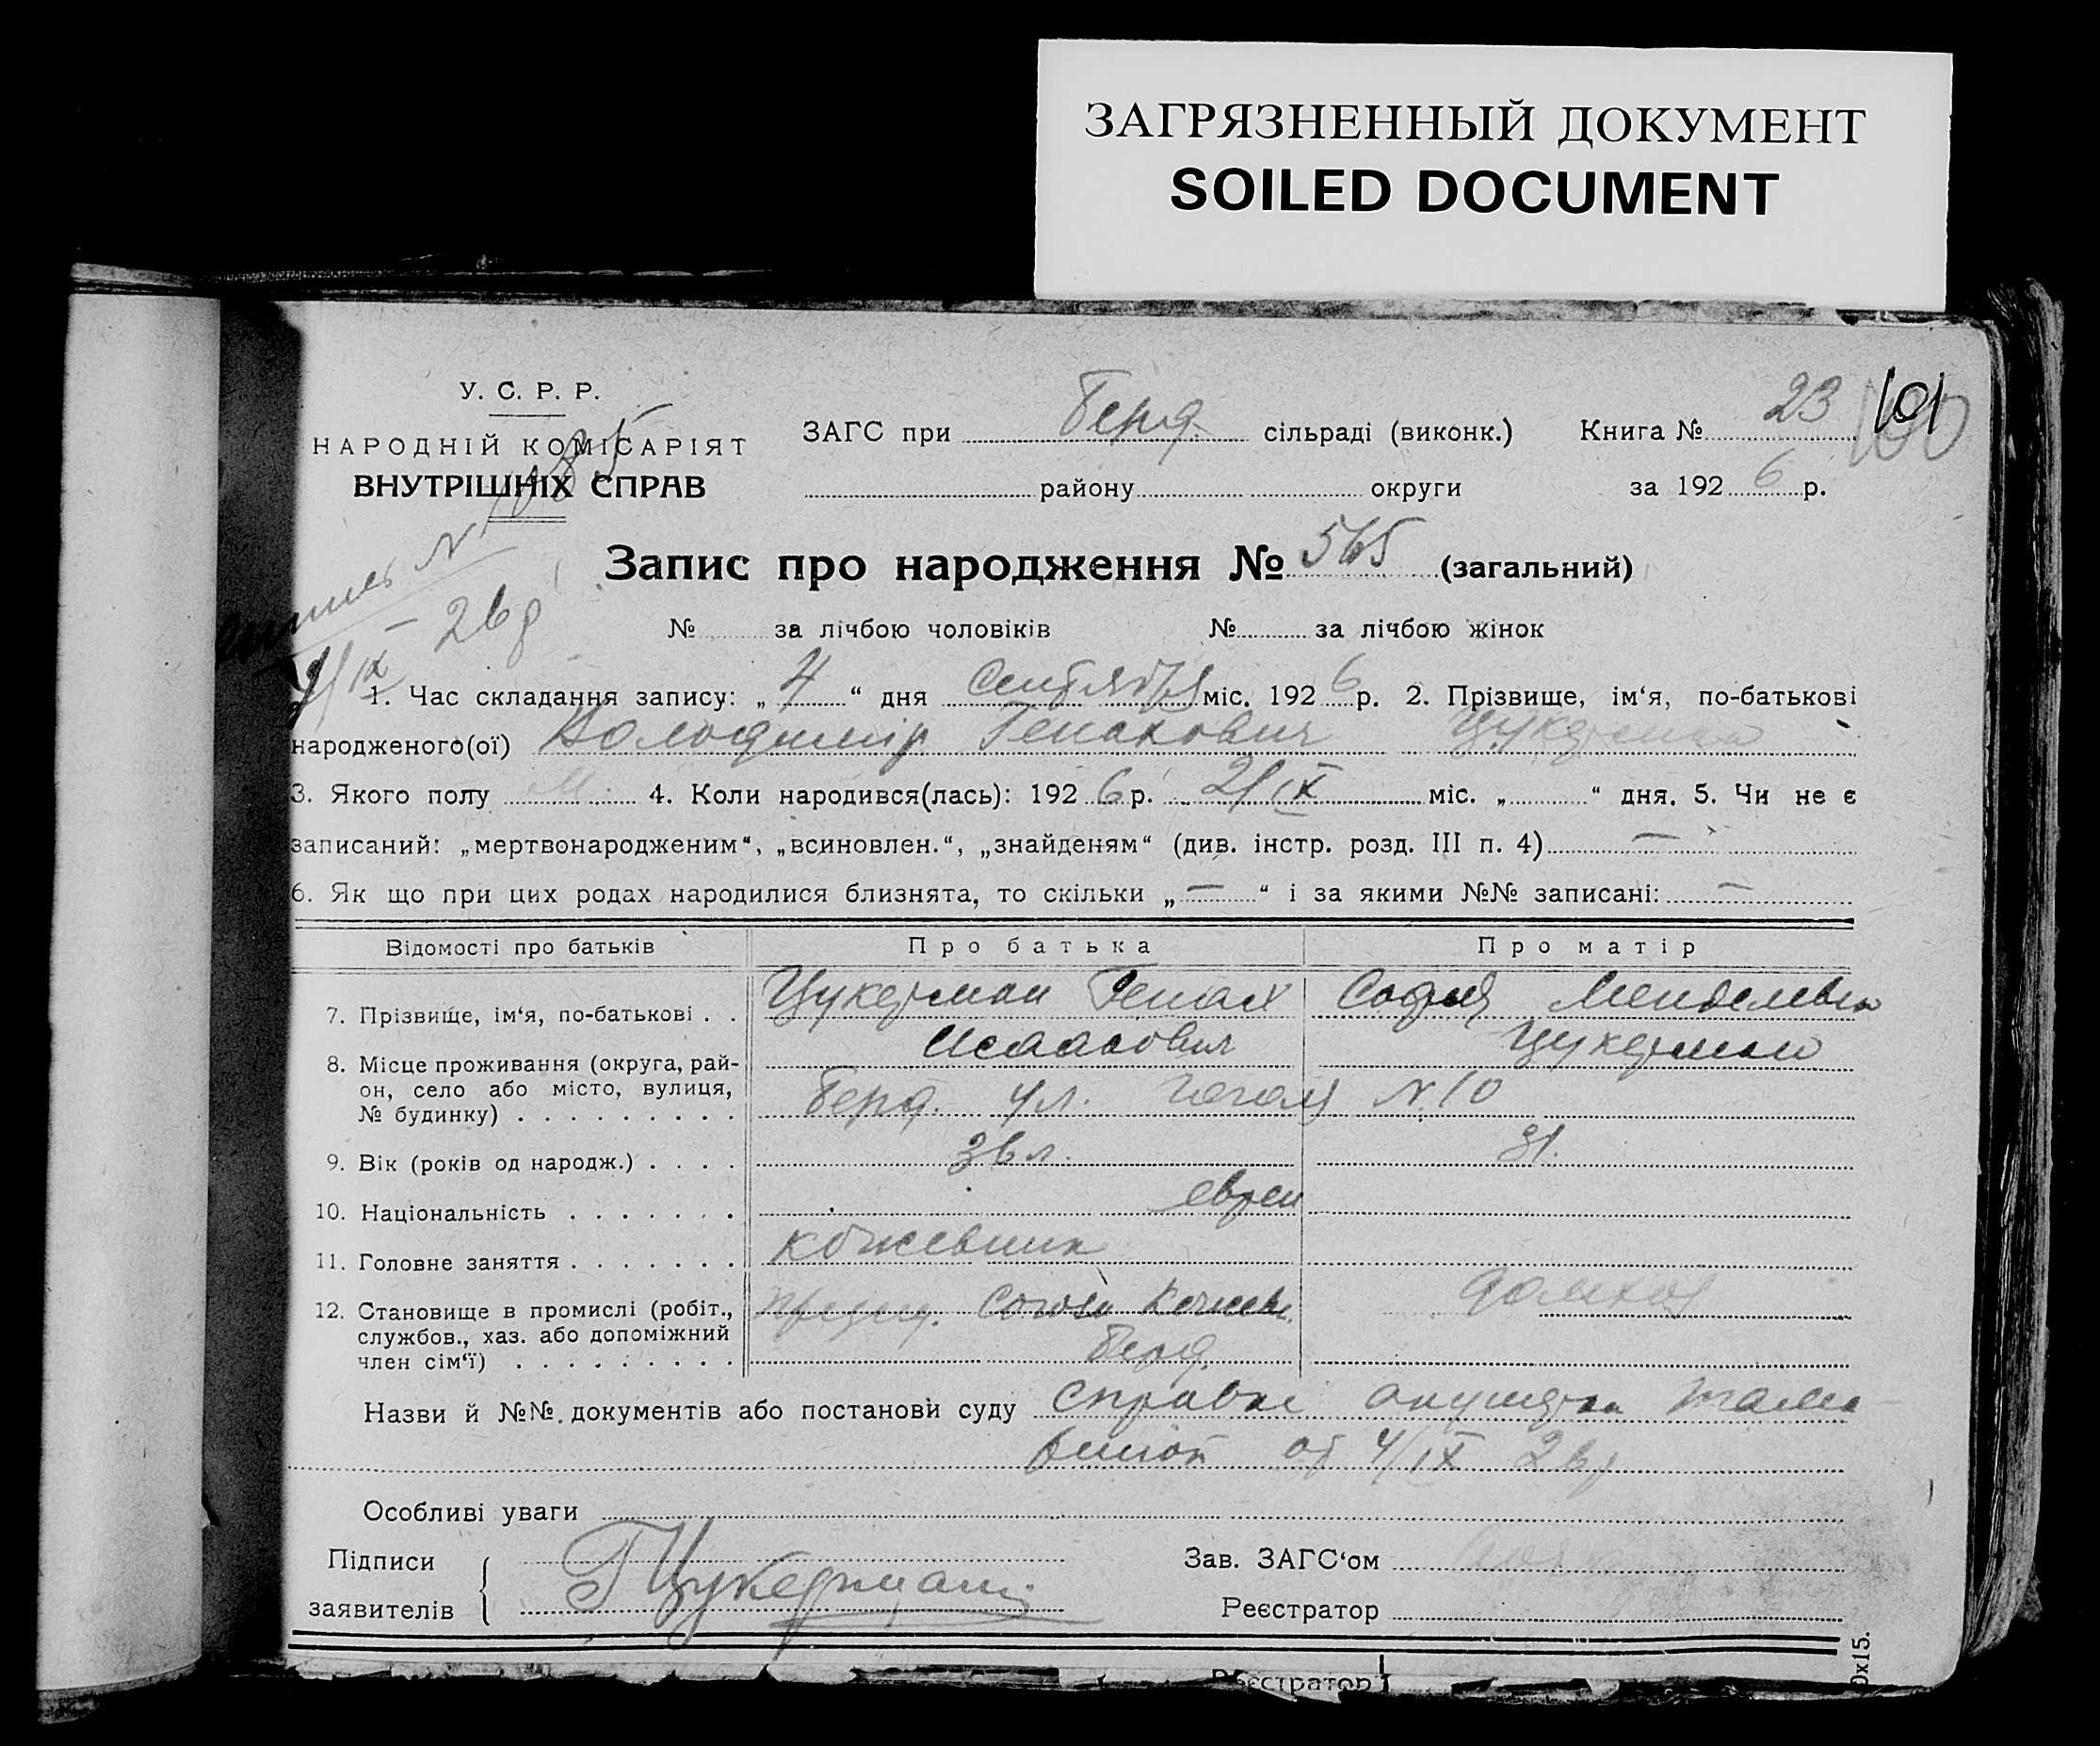 ЗАГРЯЗНЕННЫЙ ДОКУМЕНТ
SOILED DOCUMENT
У. С. Р. Р.
НАРОДНІЙ КОМІСАРІЯТ
ВНУТРІШНІХ СПРАВ
ЗАГС при Берд. сільраді (виконк.) Книга № 23 101 100
району округи за 1926 р.
Запис про народження № 565 (загальний)
№ за лічбою чоловіків № за лічбою жінок
1. Час складання запису: „4“ дня Сентября міс. 1926 р. 2. Прізвище, ім‘я, по-батькові
народженого(ої) Володимір Генахович Цукерман
3. Якого полу М. 4. Коли народився(лась): 1926 р. 2/IX міс. „ “ дня. 5. Чи не є
записаний: „мертвонародженим“, „всиновлен.“, „знайденям“ (див. інстр. розд. III п. 4) —
6. Як що при цих родах народилися близнята, то скільки „—“ і за якими №№ записані: —
Відомості про батьків Про батька Про матір
7. Прізвище, ім‘я, по-батькові . . Цукерман Генах Исаакович София Менделевна Цукерман
8. Місце проживання (округа, рай-
он, село або місто, вулиця,
№ будинку) . . . . . . . . . Берд. ул. Гоголя N. 10
9. Вік (років од народж.) . . . . 36 л. 31.
10. Національність . . . . . . . евреи
11. Головне заняття . . . . . . . кожевник
12. Становище в промислі (робіт., Председ. Союза Кожев. домхоз
службов., хаз. або допоміжний
член сім‘ї) . . . . . . . . . Берд.
Назви й №№ документів або постанови суду справка акушерки
от 4/IX 26 г
Особливі уваги
Підписи Зав. ЗАГС‘ом
заявителів Г Цукерман Реєстратор
Реєстратор